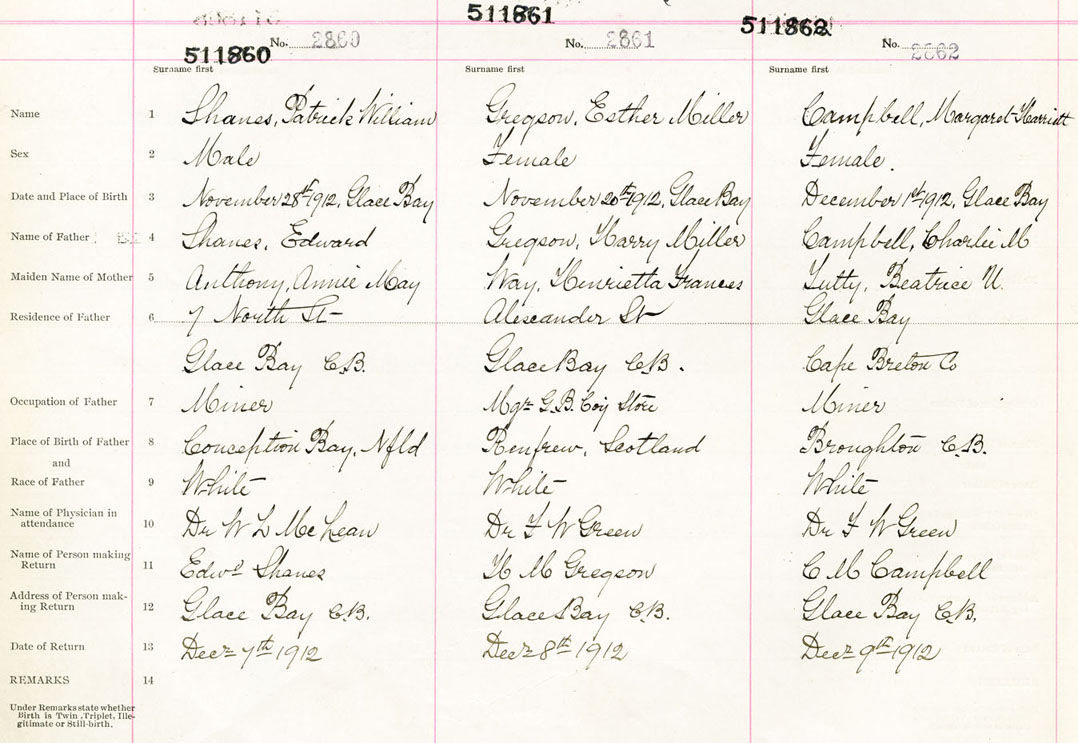 511860 511861 511862
No. 2860 No. 2861 No. 2862
Surname first Surname first Surname first
Name 1 Shanes, Patrick William Gregson, Esther Miller Campbell, Margaret Harriett
Sex 2 Male Female Female.
Date and Place of Birth 3 November 28th 1912, Glace Bay November 20th 1912, Glace Bay December 1st 1912, Glace Bay
Name of Father 4 Shanes, Edward Gregson, Harry Miller Campbell, Charlie M
Maiden Name of Mother 5 Anthony, Annie May Way, Henrietta Frances Tutty, Beatrice U.
Residence of Father 6 7 North St Alexcander St Glace Bay
Glace Bay C.B. Glace Bay C.B. Cape Breton Co
Occupation of Father 7 Miner Mgr G.B. Coy Store Miner
Place of Birth of Father 8 Conception Bay, Nfld Renfrew, Scotland Broughton C.B.
and
Race of Father 9 White White White
Name of Physician in
attendance 10 Dr W L McLean Dr F W Green Dr F W Green
Name of Person making
Return 11 Edwd Shanes H M Gregson C M Campbell
Address of Person mak-
ing Return 12 Glace Bay C.B. Glace Bay C.B. Glace Bay C.B.
Date of Return 13 Decr 7th 1912 Decr 8th 1912 Decr 9th 1912
REMARKS 14
Under Remarks state whether
Birth is Twin, Triplet, Ille-
gitimate or Still-birth.